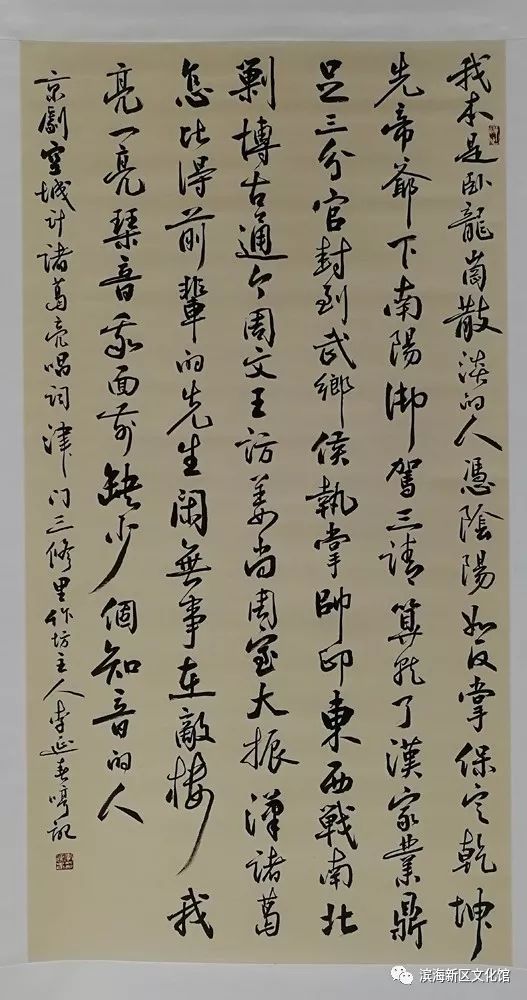 我本是卧龍崗散淡的人憑陰陽如反掌保定乾坤
先帝爺下南陽御駕三請算就了漢家業鼎
足三分官封到武鄉侯執掌帥印東西戰南北
剿博古通今周文王訪姜尚周室大振漢諸葛
怎比得前輩的先生閑無事在敵樓我
亮一亮琴音我面前缺少個知音的人
京劇空城計諸葛亮唱詞津门三修里作坊主人李延春
滨海新区文化馆